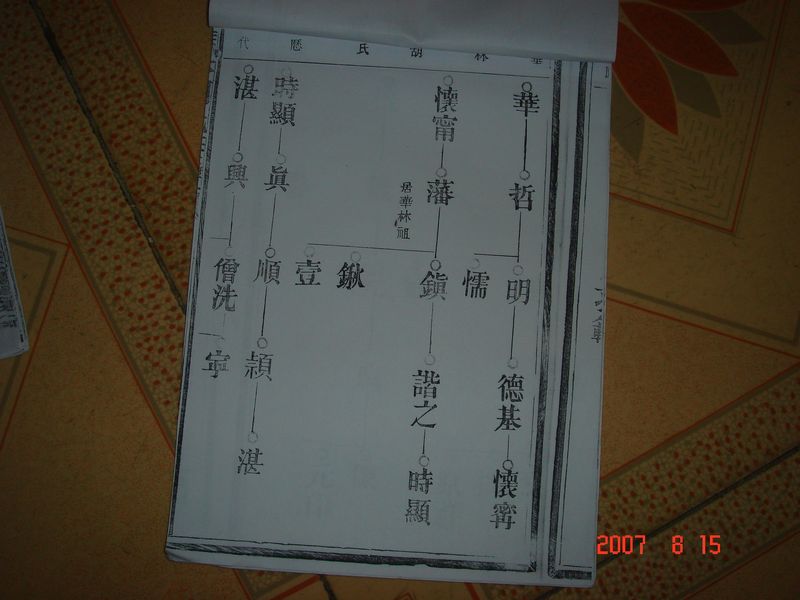 華林胡氏歷代
華 哲 明 德基 懷甯
懦
懷甯 藩 鎭 諧之 時顯
居華林祖
鍬
壹
時顯 眞 順 頴 湛
湛 興 僧洗 寧
2007 8 15